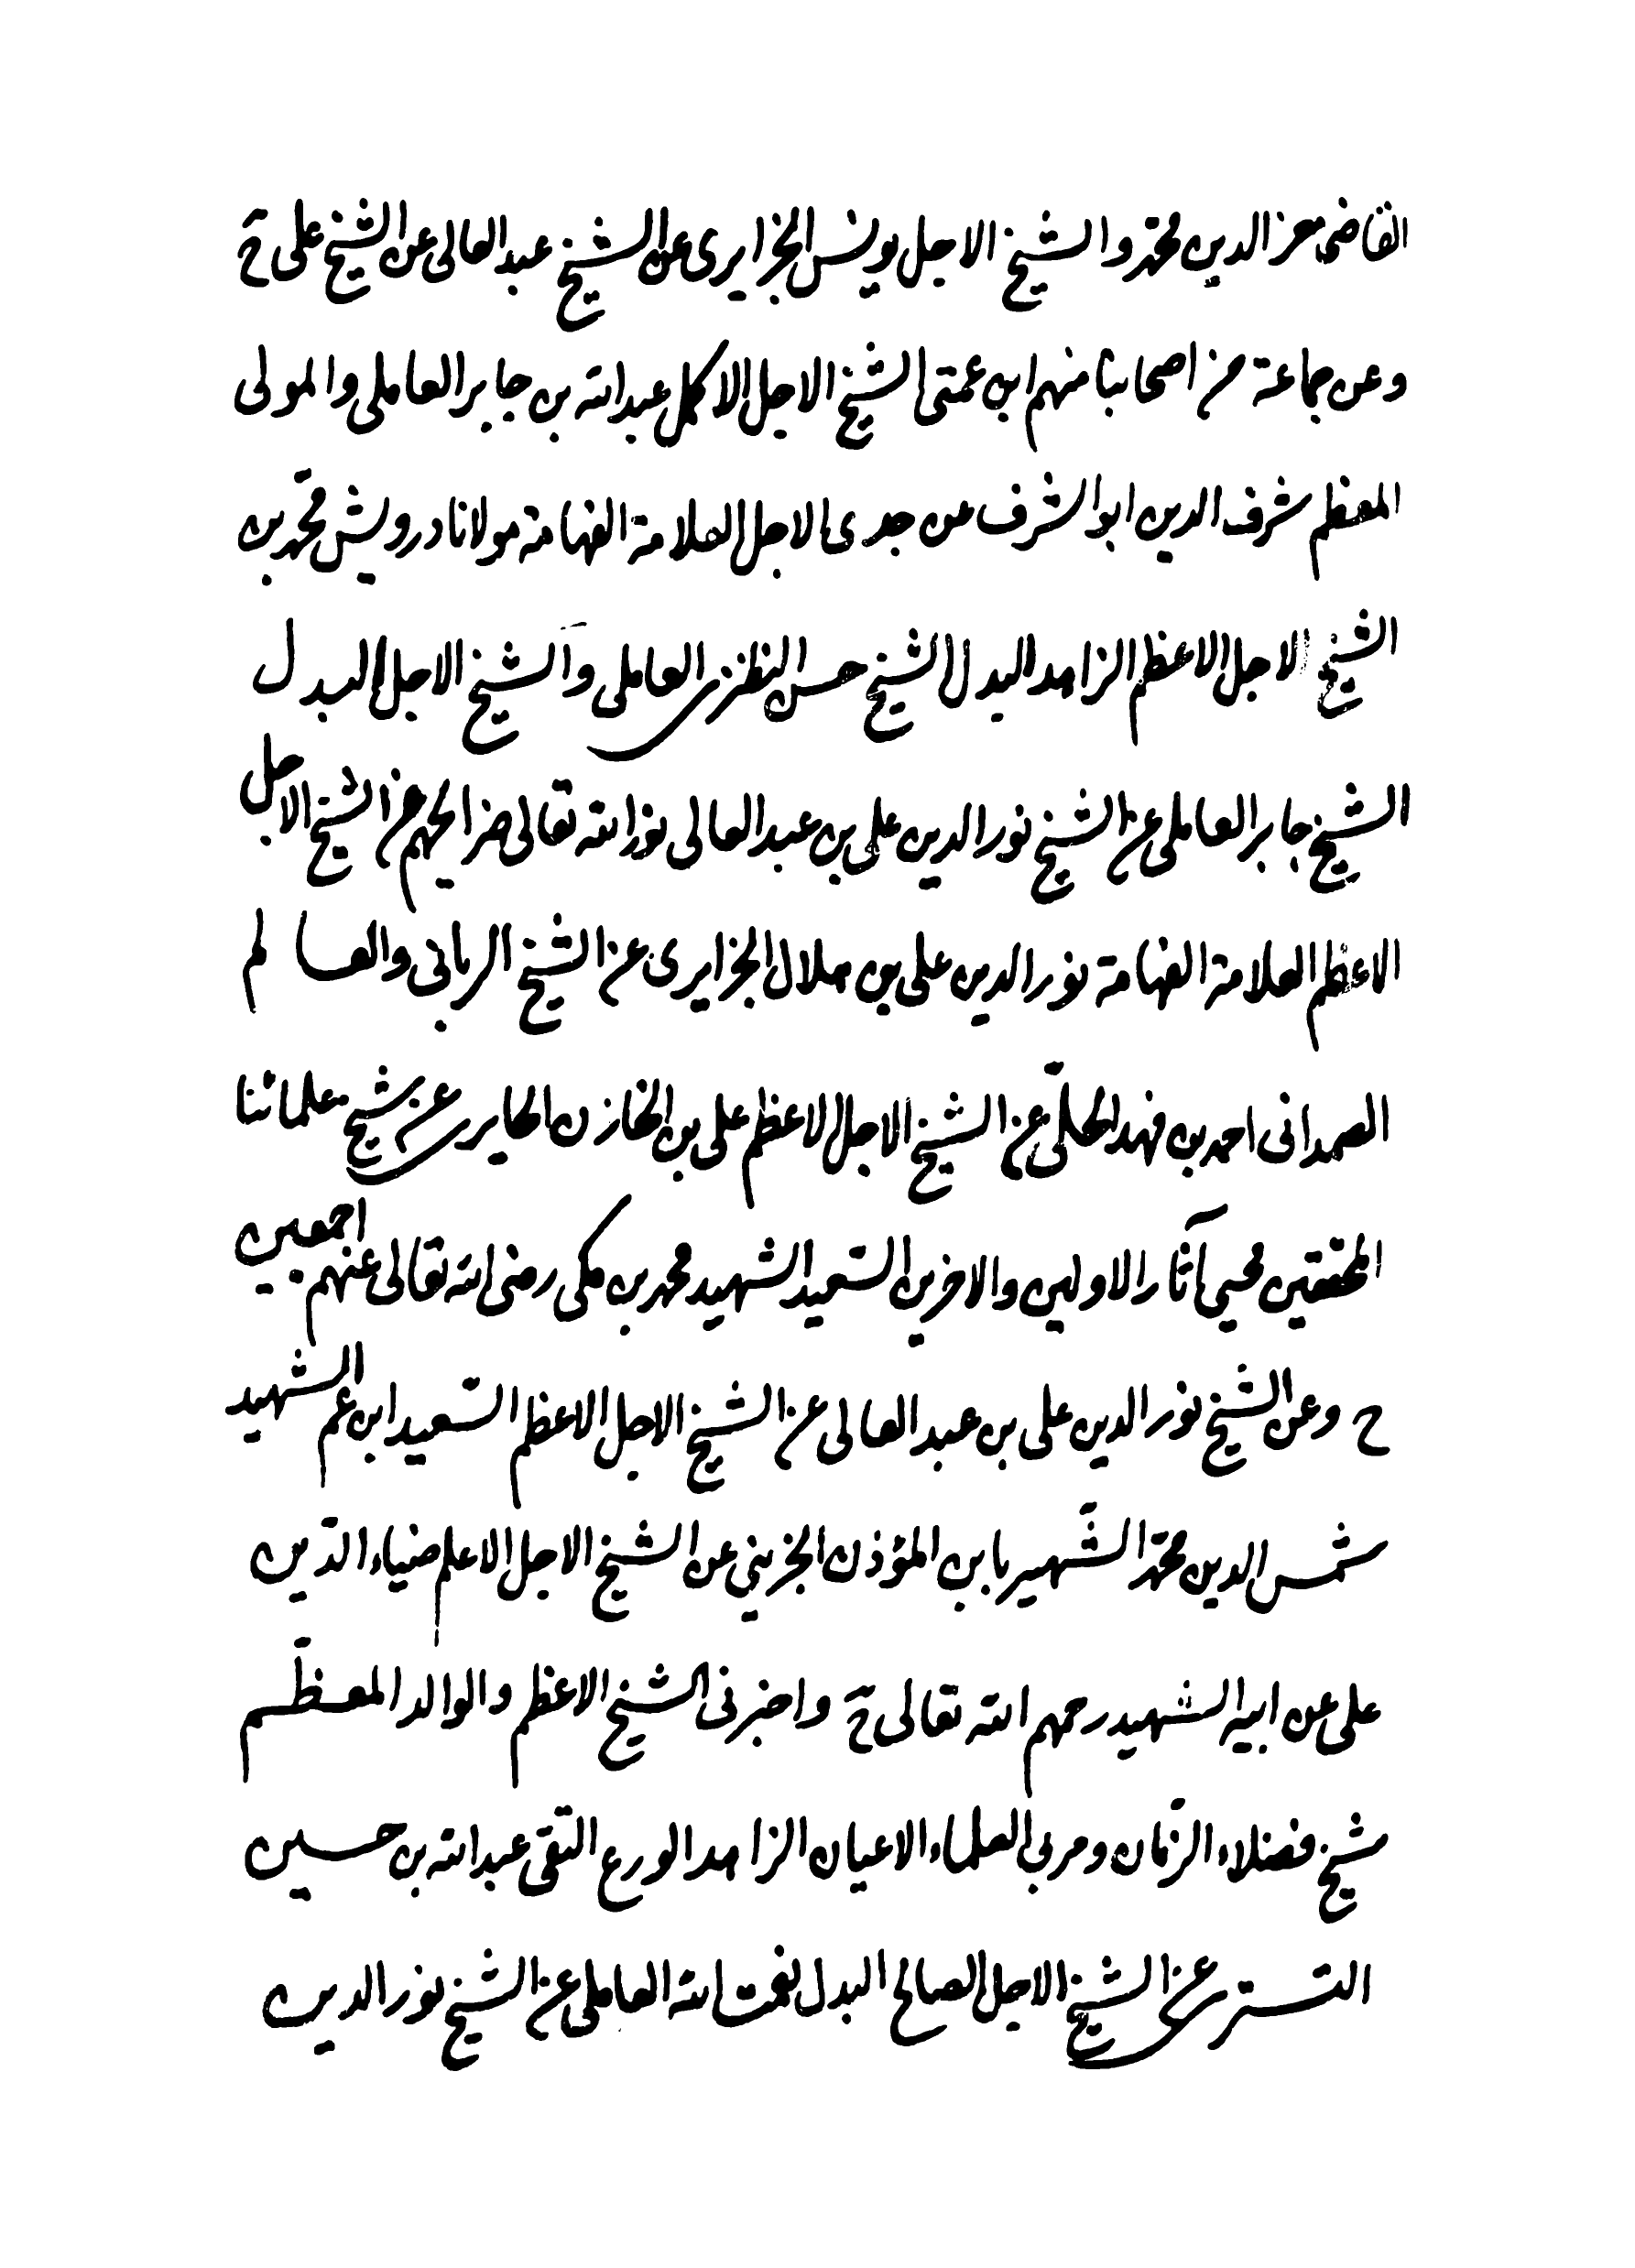 القاضى معز الدين محمّد والشيخ الاجل يونس الجزايرى عن الشيخ عبد العالى عن الشيخ على ح
وعن جماعة من اصحابنا منهم ابن عمتى الشيخ الاجل الاكمل عبد الله بن جابر العاملى والمولى
المعظم شرف الدين ابو الشرف عن جدى الاجل العلامة الفهامة مولانا درويش محمّد بن
الشيخ الاجل الاعظم الزاهد البدل الشيخ حسن النطنزى العاملى والشيخ الاجل البدل
الشيخ جابر العاملى عن الشيخ نور الدين على بن عبد العالى نور الله تعالى ضرايحهم عن الشيخ الاجل
الاعظم العلامة الفهامة نور الدين على بن هلال الجزايرى عن الشيخ الربانى والعالم
الصمدانى احمد بن فهد الحلّى عن الشيخ الاجل الاعظم على بن الخازن الحايرى عن شيخ علمائنا
المحققين محيى آثار الاولين والاخرين السّعيد الشهيد محمد بن مكى رضى الله تعالى عنهم اجمعين
ح وعن الشيخ نور الدين على بن عبد العالى عن الشيخ الاجل الاعظم السّعيد ابن عم الشهيد
شمس الدين محمّد الشّهير بابن المؤذن الجزينى عن الشيخ الاجل الاعلم ضياء الدّين
على عن ابيه الشهيد رحمهم الله تعالى ح واخبرنى الشيخ الاعظم والوالد المعظّم
شيخ فضلاء الزّمان ومربى العلماء الاعيان الزاهد الورع التقى عبد الله بن حسين
التسترى عن الشيخ الاجل الصالح البدل نعمت الله العاملى عن الشيخ نور الدين